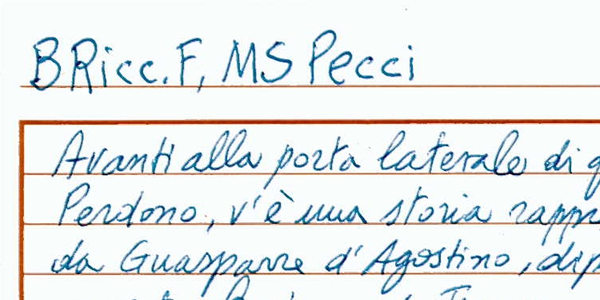 BRicc. F, MS Pecci
Avanti alla porta laterale di
Perdono, v'è una storia rappr
da Guasparre d'Agostino, dip